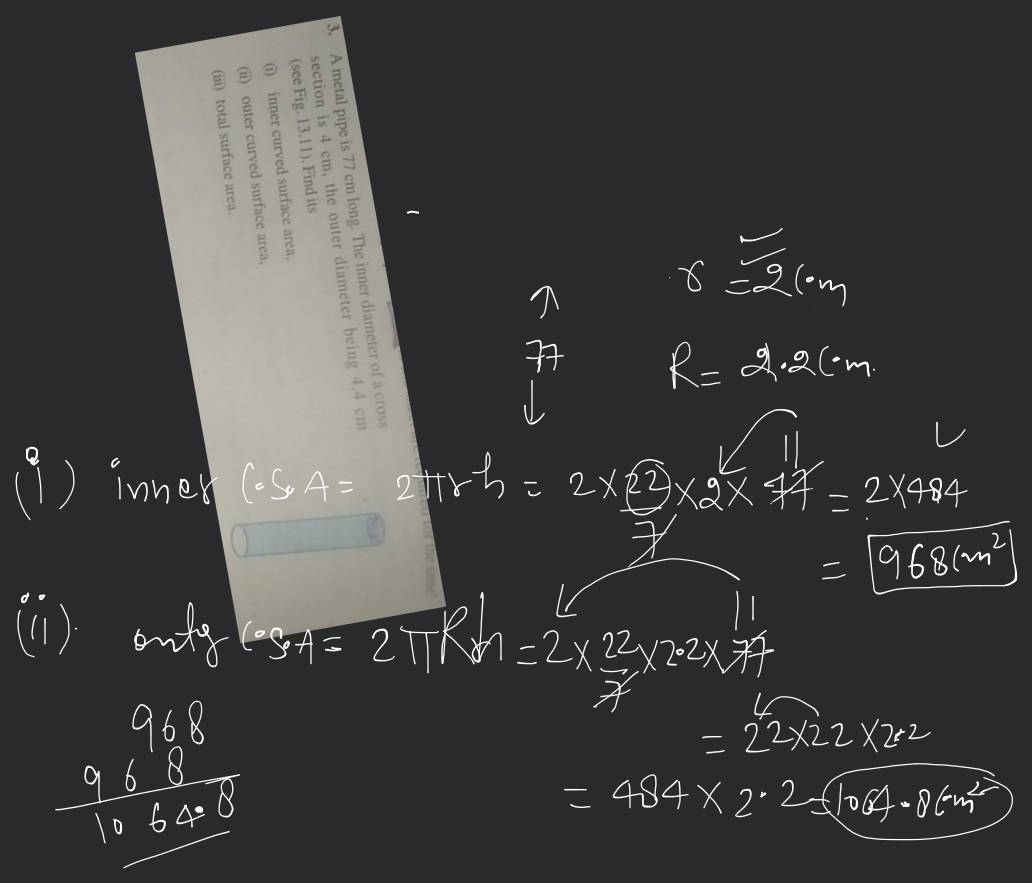 3. A metal pipe is 77 cm long. The inner diameter of a cross
section is 4 cm, the outer diameter being 4.4 cm
(see Fig. 13.11). Find its
(i) inner curved surface area,
(ii) outer curved surface area,
(iii) total surface area.
r = 2 cm
77
R = 2.2 cm.
(i) inner C.S.A = 2πrh = 2×22/7×2×77 11 = 2×484
= 968 cm²
(ii). C.S.A = 2πRh = 2×22/7×2.2×77 11
= 22×22×2.2
= 484×2.2 = 1064.8 cm²
968
968
1064.8